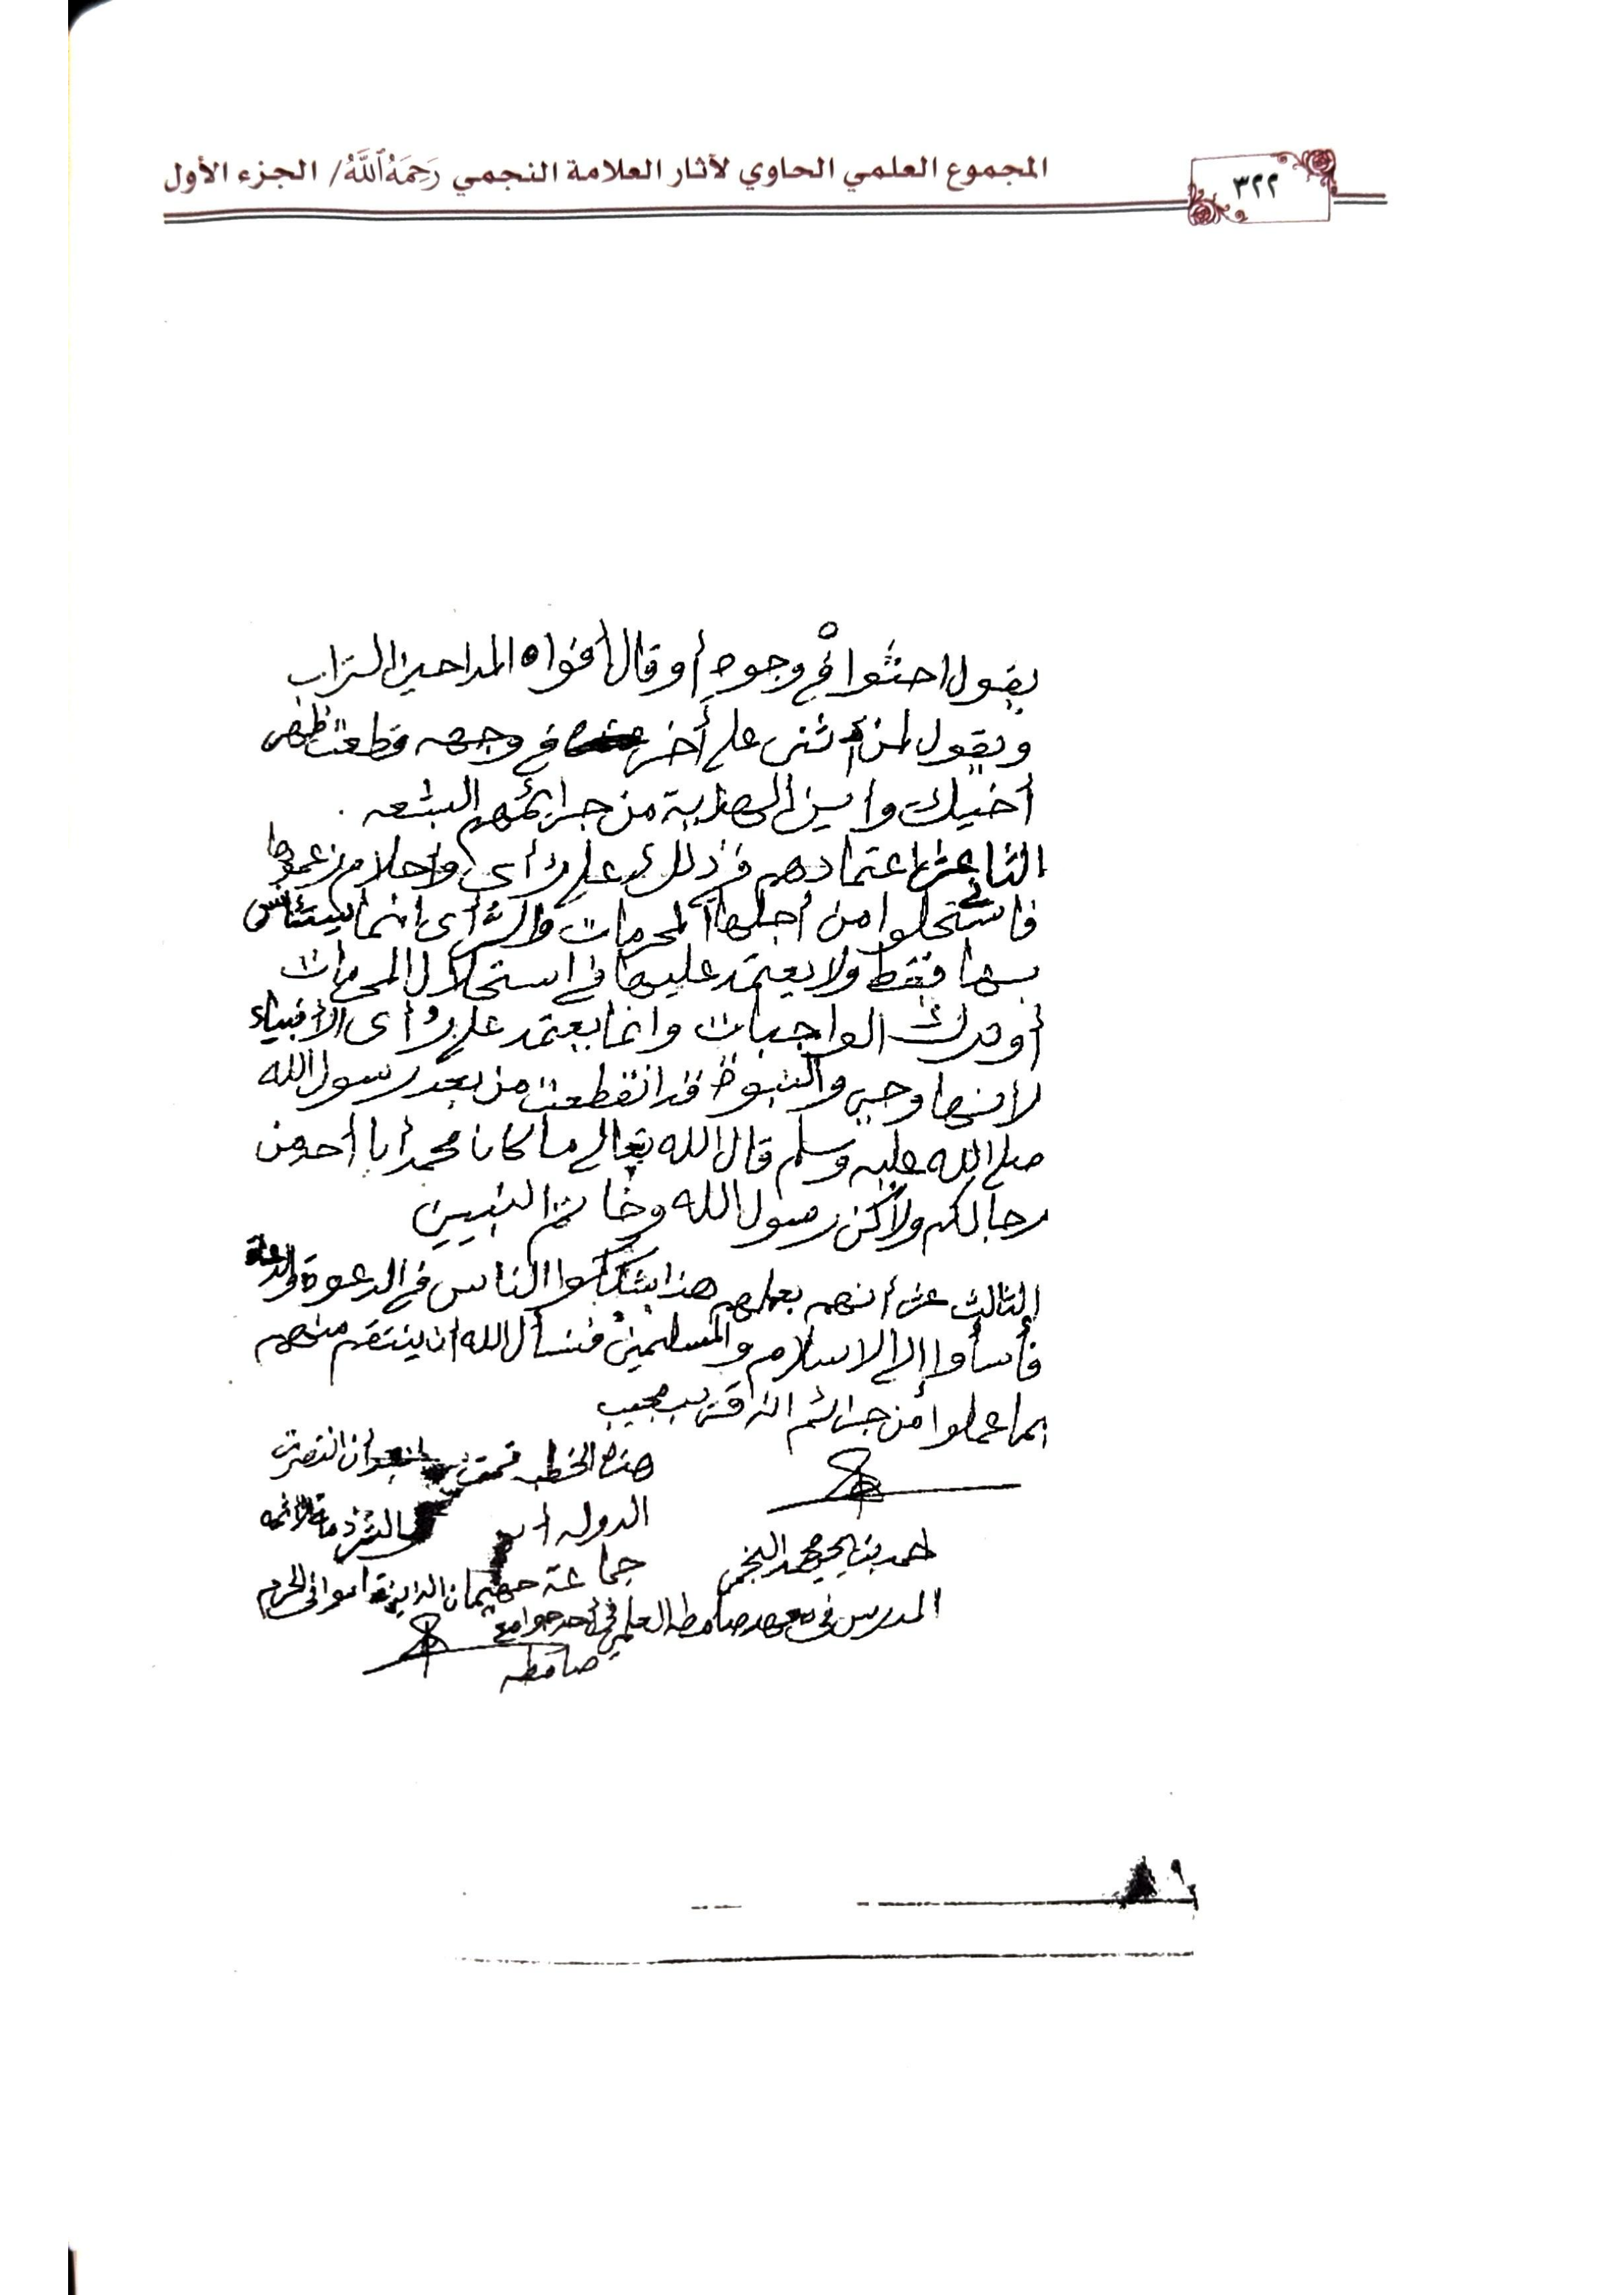 ٣٢٢
المجموع العلمي الحاوي لآثار العلامة النجمي رَحِمَهُ ٱللَّهُ/ الجزء الأول
يقول احثوا في وجوه أو قال أفواه المداحين التراب
ويقول لمن أثنى على أخر في وجهه قطعت ظهر
أخيك واين الهداية من جرائمهم البشعه .
الثاعشر اعتمادهم في ذلك على رأى وأحلام زعموها
فاستحلوا من أجلها المحرمات والرأى انما يستأنس
بها فقط ولا يعتمد عليها في استحلال المحرمات
أو ترك الواجبات وانما يعتمد على رأى الأنبياء
لأنها وحي والنبوة قد انقطعت من بعد رسول الله
صلى الله عليه وسلم قال الله تعالى ما كان محمد أبا أحد من
رجالكم ولاكن رسول الله وخاتم النبيين
الثالث عشر أنهم بعملهم هذا شككوا الناس في الدعوة والدعاة
فأسأوا إلى الاسلام والمسلمين فنسأل الله ان ينتقم منهم
بما عملوا من جرائم انه قريب مجيب
هذه الخطب تمت بعد أن انتصرت
الدوله الشرذمة الآثمه
جماعة جهيمان الذين قاموا في الحرم
احمد بن يحيى محمد النجمي
المدرس في معهد صامطه العلمي في أحد جوامع
صامطه